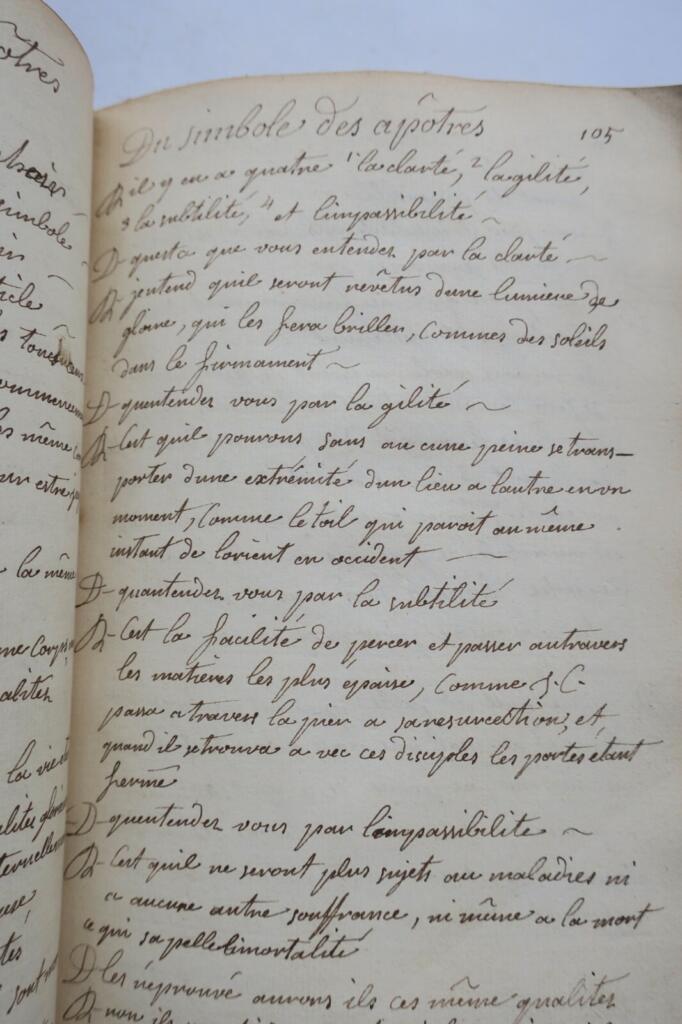 ôtres
simbole
ticle
les même
la même
me Corps
alités
la vie
Du simbole des apôtres 105
R il y en a quatre 1 la clarté, 2 la gilité,
3 la subtilité, 4 et limpassibilité ~
D questa que vous entendez par la clarté ~
R jentend quil seront revêtus dune lumiere de
gloire, qui les fera briller, Commes des soleils
dans le firmament ~
D quentendez vous par la gilité ~
R Cest quil pourons sans au cune peine se trans-
porter dune extrémité dun lieu a lautre en un
moment, Comme letoil qui paroit au même
instant de lorient en occident —
D quantendez vous par la subtilité
R Cest la facilité de percer et passer autravers
les matières les plus épaise, Comme J. C.
passa atravers la pier a saresurection, et
quand il setrouva a vec ces disciples les portes étant
fermé
D quentendez vous par limpassibilite ~
R Cest quil ne seront plus sujets au maladies ni
a aucune autre souffrance, ni même a la mort
qui sapelle limortalité
D les réprouvé aurons ils ces même qualitez
R non ils